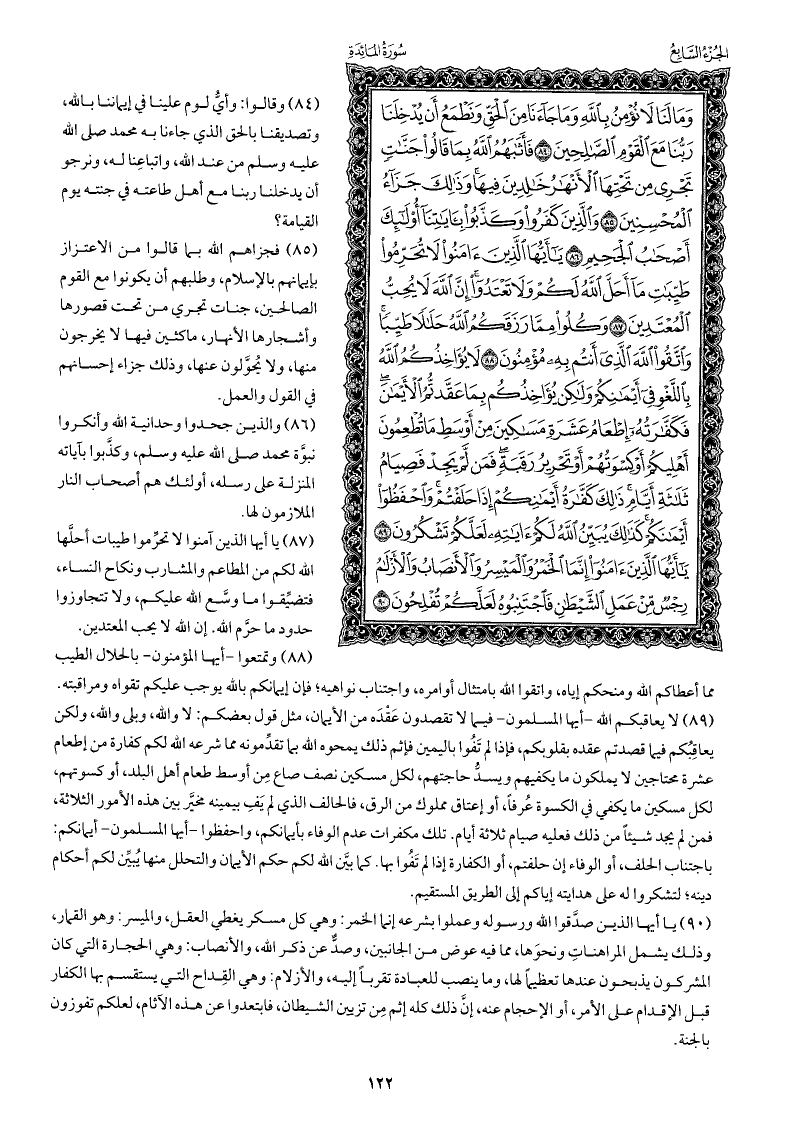 الجُزْءُ السَّابِعُ
سُورَةُ المَائِدَةِ
وَمَا لَنَا لَا نُؤْمِنُ بِاللَّهِ وَمَا جَآءَنَا مِنَ الْحَقِّ وَنَطْمَعُ أَن يُدْخِلَنَا
رَبُّنَا مَعَ الْقَوْمِ الصَّٰلِحِينَ ٨٤ فَأَثَٰبَهُمُ اللَّهُ بِمَا قَالُوا۟ جَنَّٰتٍ
تَجْرِى مِن تَحْتِهَا الْأَنْهَٰرُ خَٰلِدِينَ فِيهَا ۚ وَذَٰلِكَ جَزَآءُ
الْمُحْسِنِينَ ٨٥ وَالَّذِينَ كَفَرُوا۟ وَكَذَّبُوا۟ بِـَٔايَٰتِنَآ أُو۟لَٰٓئِكَ
أَصْحَٰبُ الْجَحِيمِ ٨٦ يَٰٓأَيُّهَا الَّذِينَ ءَامَنُوا۟ لَا تُحَرِّمُوا۟
طَيِّبَٰتِ مَآ أَحَلَّ اللَّهُ لَكُمْ وَلَا تَعْتَدُوٓا۟ ۚ إِنَّ اللَّهَ لَا يُحِبُّ
الْمُعْتَدِينَ ٨٧ وَكُلُوا۟ مِمَّا رَزَقَكُمُ اللَّهُ حَلَٰلًا طَيِّبًا ۚ
وَاتَّقُوا۟ اللَّهَ الَّذِىٓ أَنتُم بِهِۦ مُؤْمِنُونَ ٨٨ لَا يُؤَاخِذُكُمُ اللَّهُ
بِاللَّغْوِ فِىٓ أَيْمَٰنِكُمْ وَلَٰكِن يُؤَاخِذُكُم بِمَا عَقَّدتُّمُ الْأَيْمَٰنَ ۖ
فَكَفَّٰرَتُهُۥٓ إِطْعَامُ عَشَرَةِ مَسَٰكِينَ مِنْ أَوْسَطِ مَا تُطْعِمُونَ
أَهْلِيكُمْ أَوْ كِسْوَتُهُمْ أَوْ تَحْرِيرُ رَقَبَةٍ ۖ فَمَن لَّمْ يَجِدْ فَصِيَامُ
ثَلَٰثَةِ أَيَّامٍ ۚ ذَٰلِكَ كَفَّٰرَةُ أَيْمَٰنِكُمْ إِذَا حَلَفْتُمْ ۚ وَاحْفَظُوٓا۟
أَيْمَٰنَكُمْ ۚ كَذَٰلِكَ يُبَيِّنُ اللَّهُ لَكُمْ ءَايَٰتِهِۦ لَعَلَّكُمْ تَشْكُرُونَ ٨٩
يَٰٓأَيُّهَا الَّذِينَ ءَامَنُوٓا۟ إِنَّمَا الْخَمْرُ وَالْمَيْسِرُ وَالْأَنصَابُ وَالْأَزْلَٰمُ
رِجْسٌ مِّنْ عَمَلِ الشَّيْطَٰنِ فَاجْتَنِبُوهُ لَعَلَّكُمْ تُفْلِحُونَ ٩٠
(٨٤) وقالوا: وأيُّ لوم علينا في إيماننا بالله،
وتصديقنا بالحق الذي جاءنا به محمد صلى الله
عليه وسلم من عند الله، واتباعِنا له، ونرجو
أن يدخلنا ربنا مع أهل طاعته في جنته يوم
القيامة؟
(٨٥) فجزاهم الله بما قالوا من الاعتزاز
بإيمانهم بالإسلام، وطلبهم أن يكونوا مع القوم
الصالحين، جنات تجري من تحت قصورها
وأشجارها الأنهار، ماكثين فيها لا يخرجون
منها، ولا يُحوَّلون عنها، وذلك جزاء إحسانهم
في القول والعمل.
(٨٦) والذين جحدوا وحدانية الله وأنكروا
نبوَّة محمد صلى الله عليه وسلم، وكذَّبوا بآياته
المنزلة على رسله، أولئك هم أصحاب النار
الملازمون لها.
(٨٧) يا أيها الذين آمنوا لا تحرِّموا طيبات أحلَّها
الله لكم من المطاعم والمشارب ونكاح النساء،
فتضيِّقوا ما وسَّع الله عليكم، ولا تتجاوزوا
حدود ما حرَّم الله. إن الله لا يحب المعتدين.
(٨٨) وتمتعوا -أيها المؤمنون- بالحلال الطيب
مما أعطاكم الله ومنحكم إياه، واتقوا الله بامتثال أوامره، واجتناب نواهيه؛ فإن إيمانكم بالله يوجب عليكم تقواه ومراقبته.
(٨٩) لا يعاقبكم الله -أيها المسلمون- فيما لا تقصدون عَقْدَه من الأيمان، مثل قول بعضكم: لا والله، وبلى والله، ولكن
يعاقِبُكم فيما قصدتم عقده بقلوبكم، فإذا لم تَفُوا باليمين فإثم ذلك يمحوه الله بما تقدِّمونه مما شرعه الله لكم كفارة من إطعام
عشرة محتاجين لا يملكون ما يكفيهم ويسدُّ حاجتهم، لكل مسكين نصف صاع مِن أوسط طعام أهل البلد، أو كسوتهم،
لكل مسكين ما يكفي في الكسوة عُرفاً، أو إعتاق مملوك من الرق، فالحالف الذي لم يَفِ بيمينه مخيَّر بين هذه الأمور الثلاثة،
فمن لم يجد شيئاً من ذلك فعليه صيام ثلاثة أيام. تلك مكفرات عدم الوفاء بأيمانكم، واحفظوا -أيها المسلمون- أيمانكم:
باجتناب الحلف، أو الوفاء إن حلفتم، أو الكفارة إذا لم تَفُوا بها. كما بيَّن الله لكم حكم الأيمان والتحلل منها يُبيِّن لكم أحكام
دينه؛ لتشكروا له على هدايته إياكم إلى الطريق المستقيم.
(٩٠) يا أيها الذين صدَّقوا الله ورسوله وعملوا بشرعه إنما الخمر: وهي كل مسكر يغطي العقل، والميسر: وهو القمار،
وذلك يشمل المراهنات ونحوَها، مما فيه عوض من الجانبين، وصدٌّ عن ذكر الله، والأنصاب: وهي الحجارة التي كان
المشركون يذبحون عندها تعظيماً لها، وما ينصب للعبادة تقرباً إليه، والأزلام: وهي القِداح التي يستقسم بها الكفار
قبل الإقدام على الأمر، أو الإحجام عنه، إنَّ ذلك كله إثم مِن تزيين الشيطان، فابتعدوا عن هذه الآثام، لعلكم تفوزون
بالجنة.
١٢٢